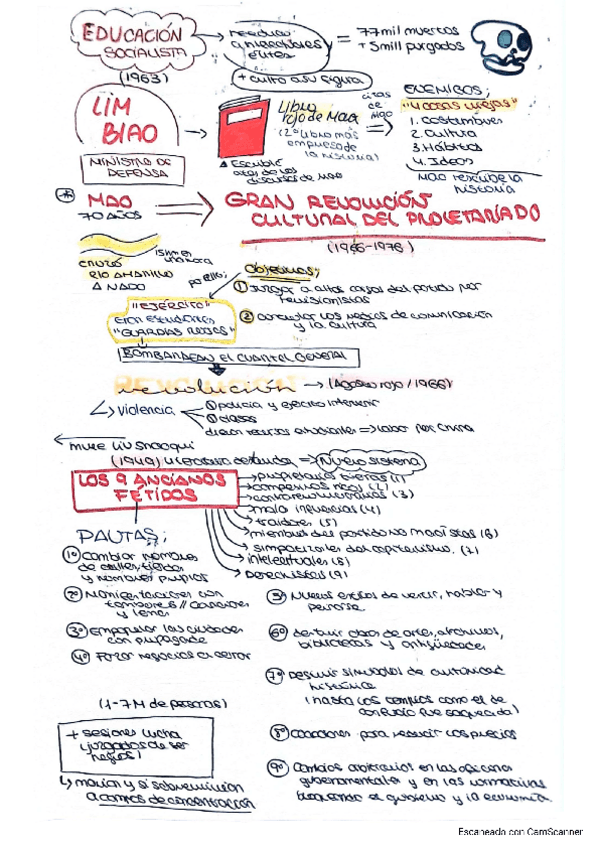 EDUCACIÓN
SOCIALISTA
(1963)
reeducar
a intelectuales
élites
= 77mil muertos
+ 5mill purgados
+ culto a su figura
LIM
BIAO
MINISTRO DE
DEFENSA
Libro
rojo de Mao
(2º libro más
impreso de
la historia)
citas
de
Mao
△ Escribió
discursos de Mao
ENEMIGOS;
"4 cosas viejas"
1. Costumbres
2. Cultura
3. Hábitos
4. Ideas
MAO reescribe la
historia
* MAO
70 AÑOS
GRAN REVOLUCIÓN
CULTURAL DEL PROLETARIADO
(1966-1976)
cruzó
RÍO AMARILLO
A NADO
15km en
una hora
por ello;
Objetivos;
① Purgar a altos cargos del partido por
revisionistas
② controlar los medios de comunicación
y la cultura
"EJÉRCITO"
eran estudiantes
"GUARDIAS ROJOS"
BOMBARDEAN EL CUARTEL GENERAL
revolución → (Agosto rojo / 1966)
↳ violencia
① policía y ejército intervenir
② clases
dieron recursos estudiantes => labor por China
muere Liu Shaoqi
(1949) => Nuevo sistema
LOS 9 ANCIANOS
FÉTIDOS
propietarios tierras (1)
campesinos ricos (2)
contrarrevolucionarios (3)
mala influencias (4)
traidores (5)
miembros del partido no maoístas (6)
simpatizantes del capitalismo. (7)
intelectuales (8)
Derechistas (9)
PAUTAS;
1º Cambiar nombres
de calles, tiendas
y nombres propios
2º Manifestaciones con
tambores // canciones
y lemas
3º Empapelar las ciudades
con propaganda
4º Forzar negocios a cerrar
5º Nuevos estilos de vestir, hablar y
peinarse
6º destruir obras de arte, archivos,
bibliotecas y antigüedades
7º Destruir símbolos de autoridad
histórica
(hasta los templos como el de
Confucio fue saqueado)
8º coacciones para reducir los precios
9º Cambios arbitrarios en las oficinas
gubernamentales y en las normativas
bloqueando el gobierno y la economía.
(1-7M de personas)
+ sesiones lucha
(juzgados de ser
negros)
↳ morían y si sobrevivían
a campos de concentración
Escaneado con CamScanner